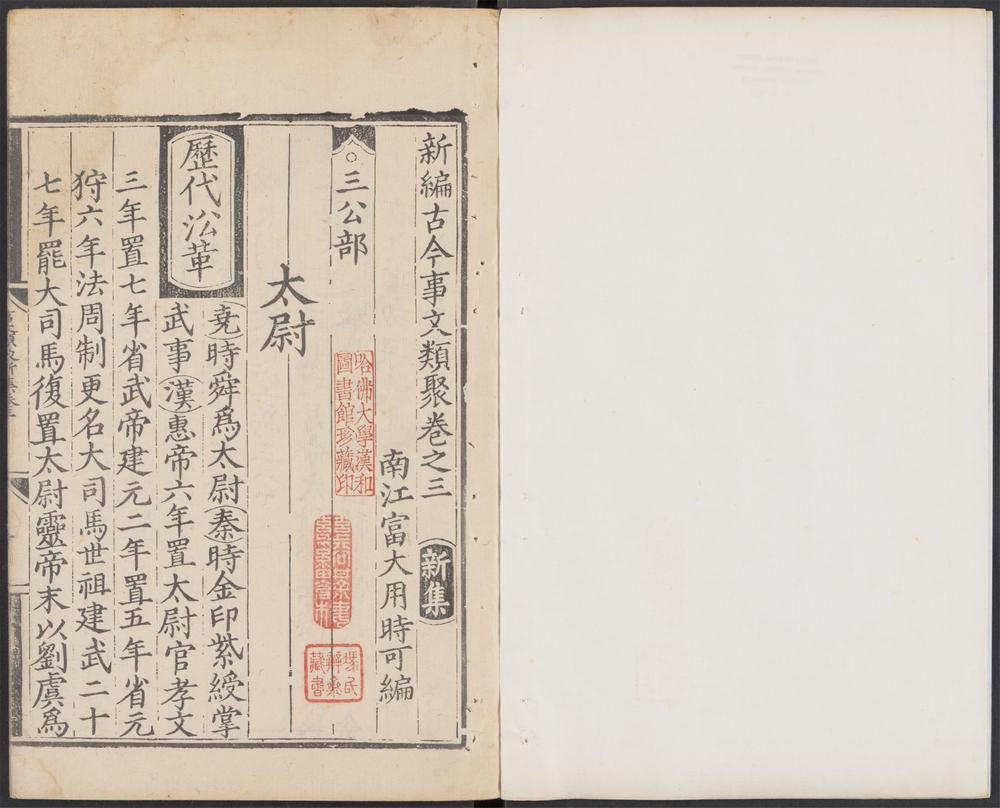 新編古今事文類聚卷之三 新集
南江富大用時可編
三公部
太尉
歷代㳂革
堯時舜爲太尉秦時金印紫綬掌
武事漢惠帝六年置太尉官孝文
三年置七年省武帝建元二年置五年省元
狩六年法周制更名大司馬世祖建武二十
七年罷大司馬復置太尉靈帝末以劉虞爲
哈佛大學漢和
圖書館珍藏印